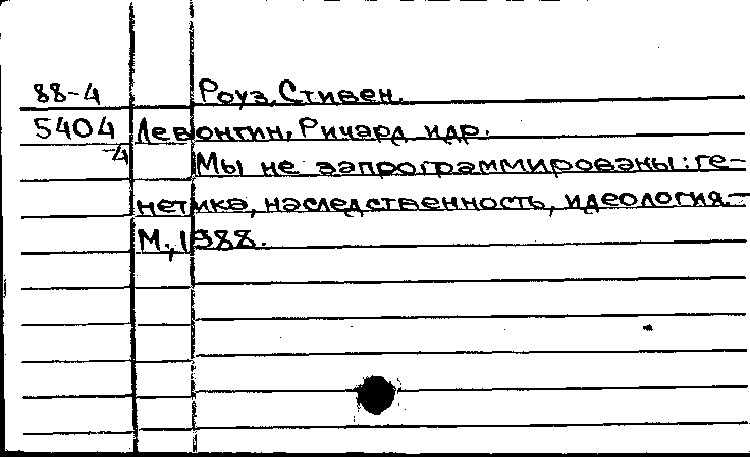 88-4 Роуз, Стивен.
5404 Левонтин, Ричард и др.
-4 Мы не запрограммированы: ге-
нетика, наследственность, идеология.-
М., 1988.